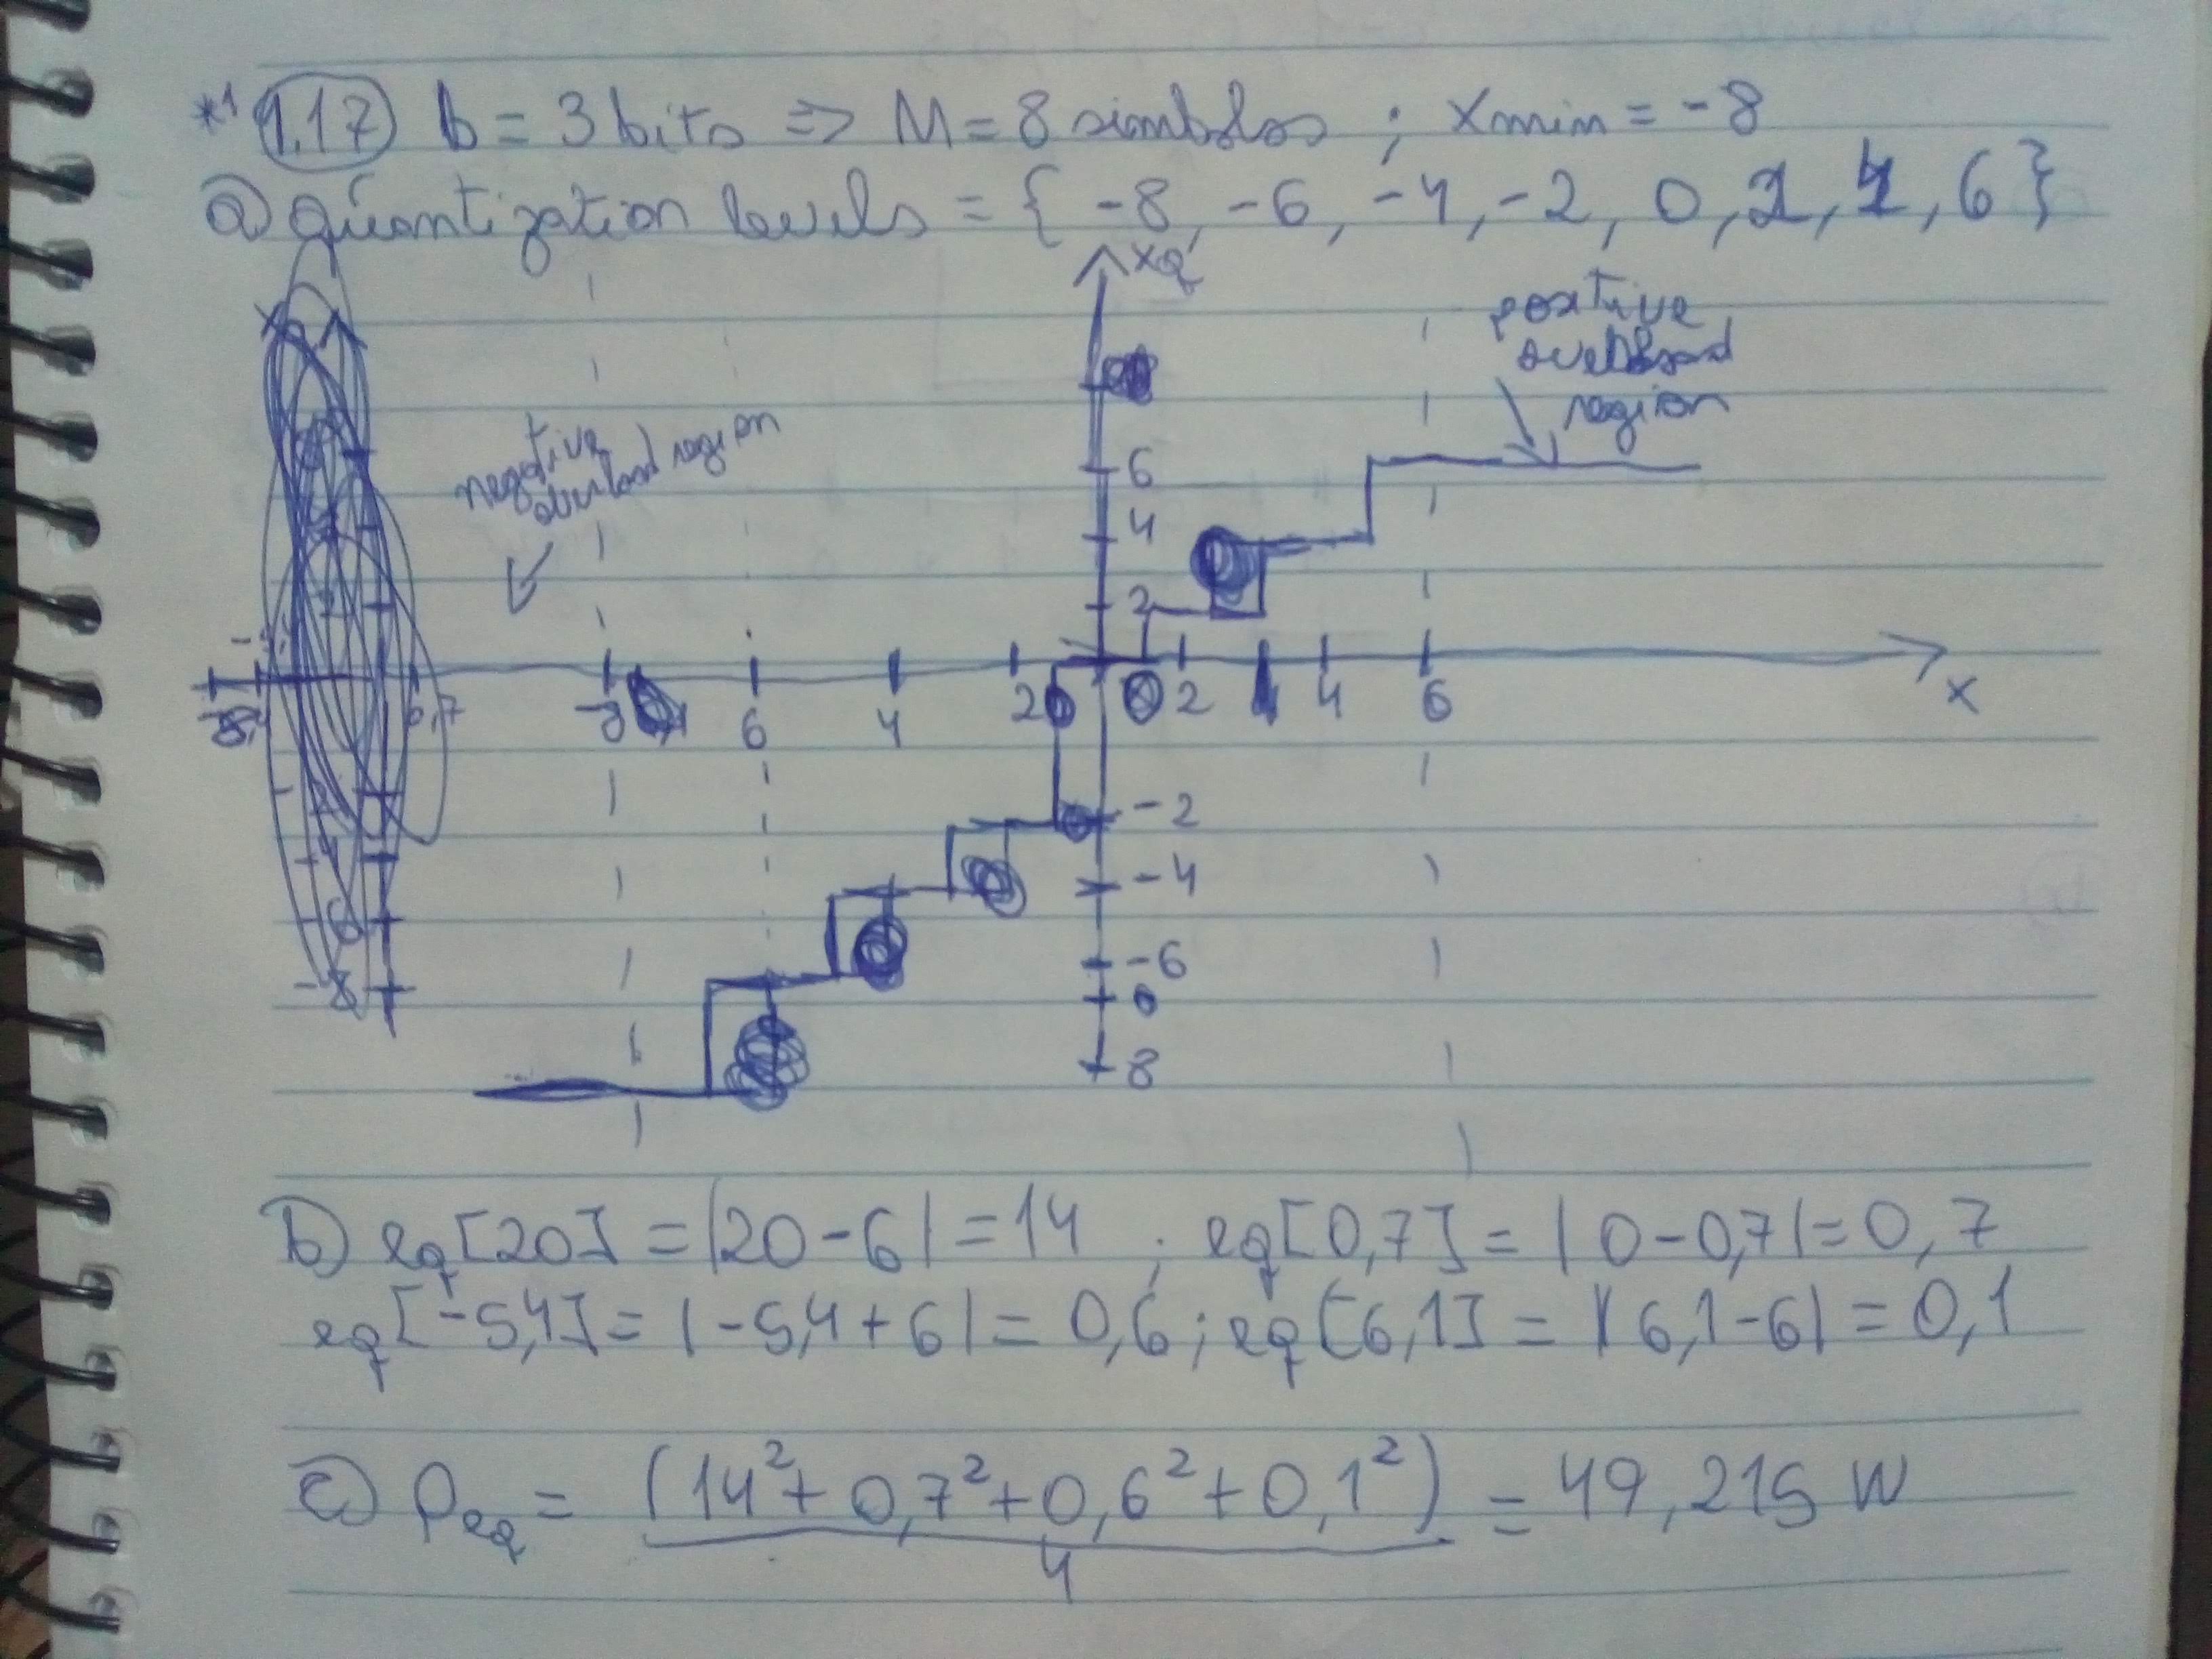 *1 1.17 b = 3 bits => M = 8 simbolos ; Xmin = -8
a) quantization levels = { -8, -6, -4, -2, 0, 2, 4, 6 }
xq
positive
overload
region
negative
overload region
6
4
2
-8 6 4 2 0 2 4 6
x
-2
-4
-6
8
-8
b) eq[20] = |20-6| = 14 ; eq[0,7] = |0-0,7| = 0,7
eq[-5,4] = |-5,4+6| = 0,6 ; eq[6,1] = |6,1-6| = 0,1
c) Peq = (14² + 0,7² + 0,6² + 0,1²) = 49,215 W
4